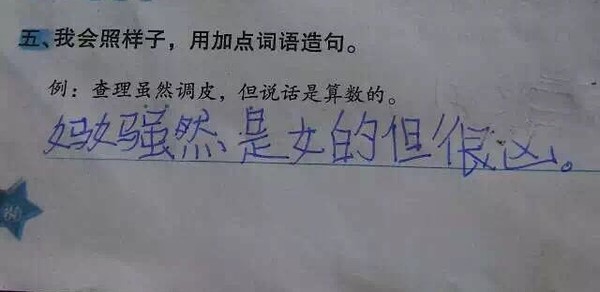 五、我会照样子，用加点词语造句。
例：查理虽然调皮，但说话是算数的。
妈妈虽然是女的但很凶。